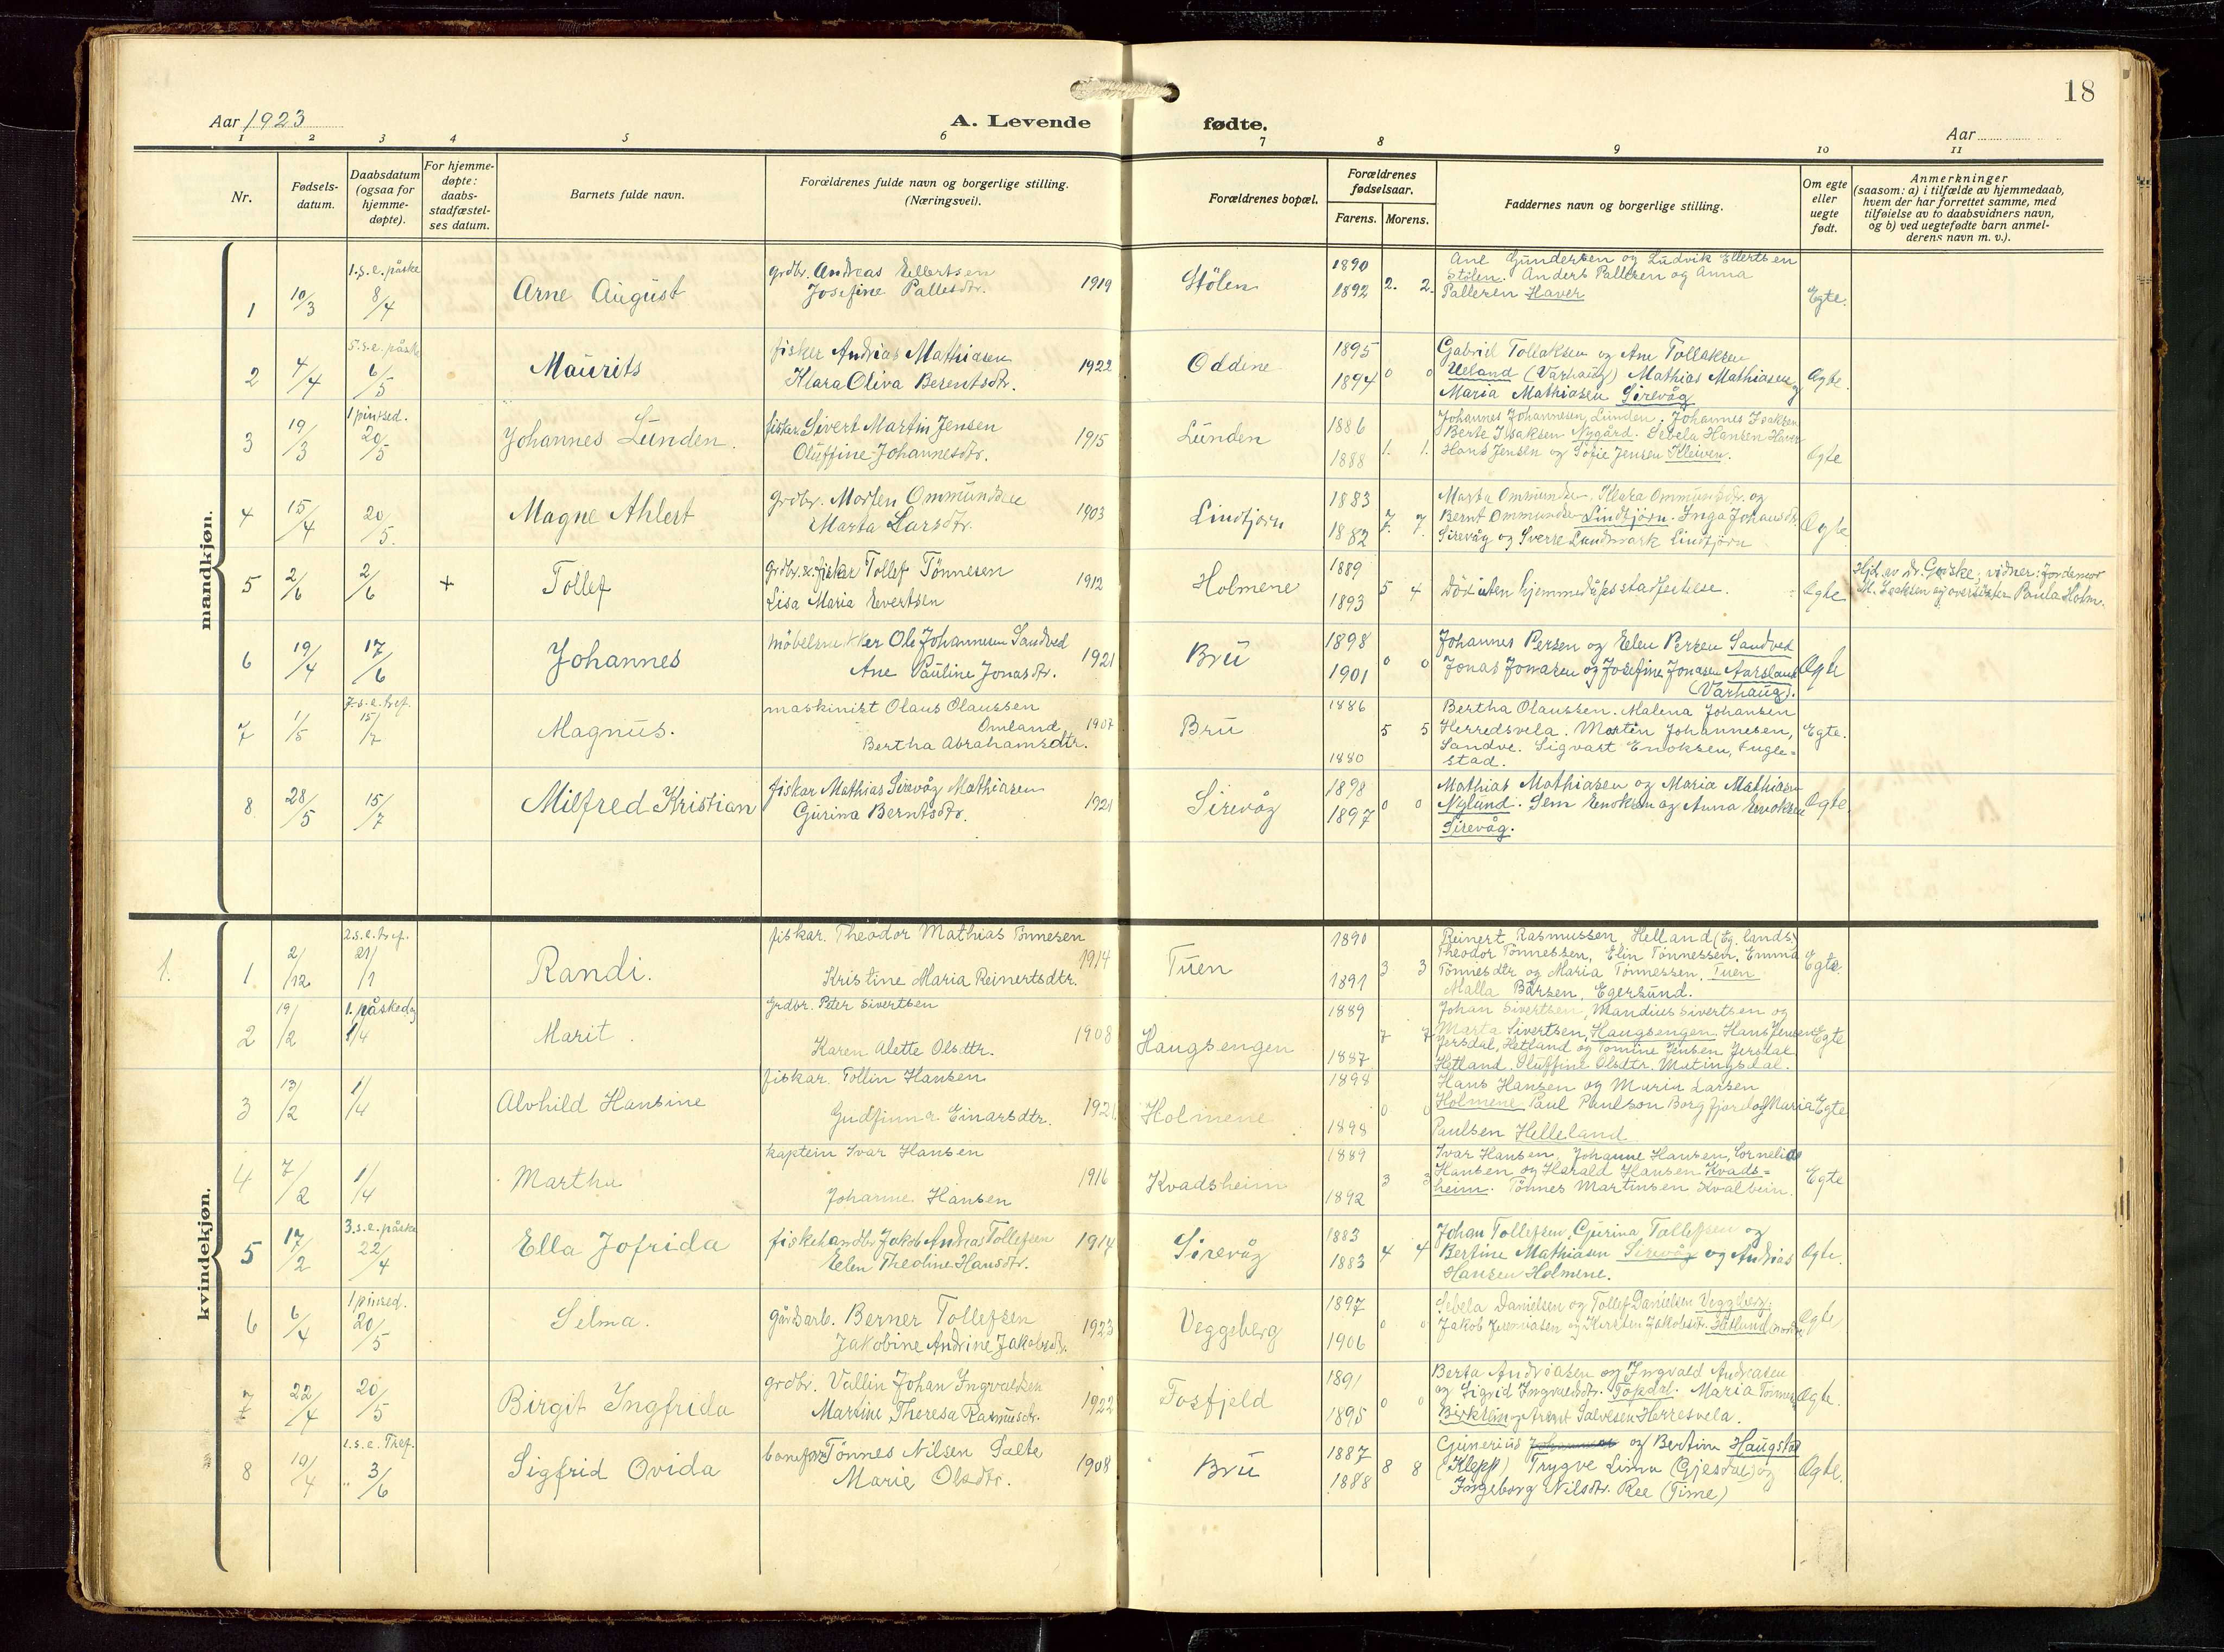 18
Aar 1923
A. Levende fødte.
Aar
1 2 3 4 5 6 7 8 9 10 11
Nr.
Fødsels-
datum.
Daabsdatum
(ogsaa for
hjemme-
døpte).
For hjemme-
døpte:
daabs-
stadfæstel-
ses datum.
Barnets fulde navn.
Forældrenes fulde navn og borgerlige stilling.
(Næringsvei).
Forældrenes bopæl.
Forældrenes
fødselsaar.
Farens. Morens.
Faddernes navn og borgerlige stilling.
Om egte
eller
uegte
født.
Anmerkninger
(saasom: a) i tilfælde av hjemmedaab,
hvem der har forrettet samme, med
tilføielse av to daabsvidners navn,
og b) ved uegtefødte barn anmel-
derens navn m. v.).
mandkjøn.
1 10/3 1.s.e.påske 8/4 Arne August
grdbr. Andreas Ellertsen
Josefine Pallesdtr. 1919
Stølen 1890 1892 2. 2.
Ane Gundersen og Ludvik Ellertsen
Stølen. Anders Pallesen og Anna
Pallesen Haver
Egte.
2 4/4 5.s.e.påske 6/5 Maurits
fisker Andreas Mathiasen
Klara Oliva Berentsdtr. 1922
Oddene 1895 1894 0 0
Gabriel Tollaksen og Ane Tollaksen
Ueland (Varhaug) Mathias Mathiasen og
Maria Mathiasen Sirevåg
Egte.
3 19/3 1 pinsed. 20/5 Johannes Lunden.
fiskar Sivert Martin Jensen
Oluffine Johannesdtr. 1915
Lunden 1886 1888 1. 1.
Johannes Johannesen, Lunden. Johannes Isaksen
Berte Isaksen Nygård. Sebela Hansen Haver
Hans Jensen og Sofie Jensen Kleiven.
Egte
4 15/4 20/5. Magne Ahlert
grdbr. Morten Ommundsen
Marta Larsdtr. 1903
Lindtjørn 1883 1882 7. 7.
Marta Ommundsen, Klara Ommundsdtr. og
Bernt Ommundsen Lindtjørn. Inga Johansdtr.
Sirevåg og Sverre Lundmark Lindtjørn
Egte
5 2/6 2/6 + Tollef
grdbr. & fisker Tollef Tönnesen
Lisa Maria Evertsen 1912
Holmene 1889 1893 5 4
Död uten hjemmedåpsstadfestelse.
Egte
Hjd. av dr. Gjeske; vidner: Jordemor
M. Isaksen og oversöster Paula Holm.
6 19/4 17/6 Johannes
möbelsnekker Ole Johannesen Sandved
Ane Pauline Jonasdtr. 1921
Bru 1898 1901 0 0
Johannes Persen og Elen Persen Sandved
Jonas Jonasen og Josefine Jonasen Aarsland
(Varhaug).
Egte
7 1/5 7.s.e.tref. 15/7 Magnus.
maskinist Olaus Olaussen
Omland 1907
Bertha Abrahamsdtr.
Bru 1886 1880 5 5
Bertha Olaussen. Malena Johansen
Herredsvela. Morten Johannesen,
Sandve. Sigvart Enoksen, Fugle=
stad.
Egte.
8 28/5 15/7 Milfred Kristian
fiskar Mathias Sirevåg Mathiasen
Gurina Berntsdtr. 1921
Sirevåg 1898 1897 0 0
Mathias Mathiasen og Maria Mathiasen
Nylund. Sem Enoksen og Anna Enoksen
Sirevåg.
Egte.
kvindekjøn.
1. 1 2/12 2.s.e.tref. 21/1 Randi.
fiskar. Theodor Mathias Tønnesen
Kristine Maria Reinertsdtr. 1914
Tuen 1890 1891 3 3
Reinert Rasmussen Helland (Eg. lands.)
Theodor Tønnessen, Elin Tønnessen, Emma
Tønnesdtr og Maria Tønnessen, Tuen
Malla Bårsen, Egersund.
Egte
2 19/2 1. påskedag 1/4 Marit.
Grdbr. Peter Sivertsen
Karen Alette Olsdtr. 1908
Haugsengen 1889 1887 7 7
Johan Sivertsen, Mandius Sivertsen og
Marta Sivertsen, Haugsengen. Hans Jensen
Jersdal, Hetland og Tomine Jensen Jersdal
Hetland. Oluffine Olsdtr. Matingsdal.
Egte
3 13/2 1/4 Alvhild Hansine
fiskar. Tollin Hansen
Gudfinna Einarsdtr. 1921
Holmene 1898 1898 0 0
Hans Hansen og Maria Larsen
Holmene Paul Paulson Borgfjord og Maria
Paulsen Helleland
Egte
4 7/2 1/4 Martha
kaptein Ivar Hansen
Johanne Hansen 1916
Kvadsheim 1889 1892 3 3
Ivar Hansen. Johanne Hansen, Cornelide
Hansen og Harald Hansen Kvads=
heim. Tønnes Martinsen Kvalbein.
Egte
5 17/2 3.s.e.påske 22/4 Ella Jofrida
fiskehandlr Jakob Andreas Tollefsen
Elen Theoline Hansdtr. 1914
Sirevåg 1883 1883 4 4
Johan Tollefsen, Gurina Tollefsen og
Bertine Mathiasen Sirevåg og Andreas
Hansen Holmene.
Egte.
6 6/4 1 pinsed. 20/5 Selma.
gårdsarb. Berner Tollefsen
Jakobine Andrine Jakobsdtr. 1923
Veggeberg 1897 1906 0 0
Sebela Danielsen og Tollef Danielsen Veggeberg.
Jakob Jeremiasen og Kirsten Jakobsdtr. Hetland
Egte
7 22/4 20/5 Birgit Ingfrida
grdbr. Vallin Johan Ingvaldsen
Martine Theresa Rasmusdtr. 1922
Fosfjeld 1891 1895 0 0
Berta Andreasen og Ingvald Andreasen
og Sigrid Ingvaldsdtr. Tosdal. Maria Tönnesen
Birkrem, Arent Salvesen Herresvela.
Egte.
8 19/4 1.s.e.Tref. 3/6 Sigfrid Ovida
baneform Tönnes Nilsen Salte
Marie Olsdtr. 1908
Bru 1887 1888 8 8
Gunerius og Bertine Haugstad
(Klepp) Trygve Lima (Gjesdal) og
Ingeborg Nilsdtr. Ree (Time)
Egte.